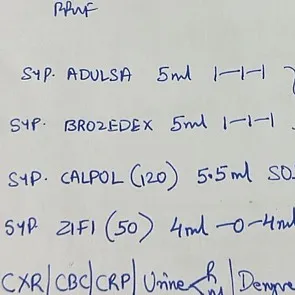 SYP. ADULSA 5ml 1-1-1
SYP. BROZEDEX 5ml 1-1-1
SYP. CALPOL (120) 5.5ml SO
SYP ZIFI (50) 4ml -0-4ml
CXR|CBC|CRP| Urine | Dengue